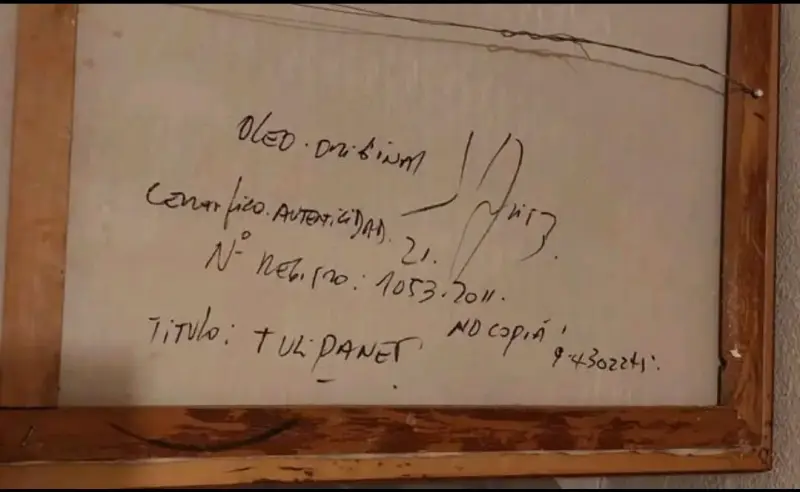 OLEO. ORIGINAL
CERTIFICO. AUTENTICIDAD.
21.
Nº REGISTRO: 1053.2011.
TITULO: TULIPANES
NO COPIA!